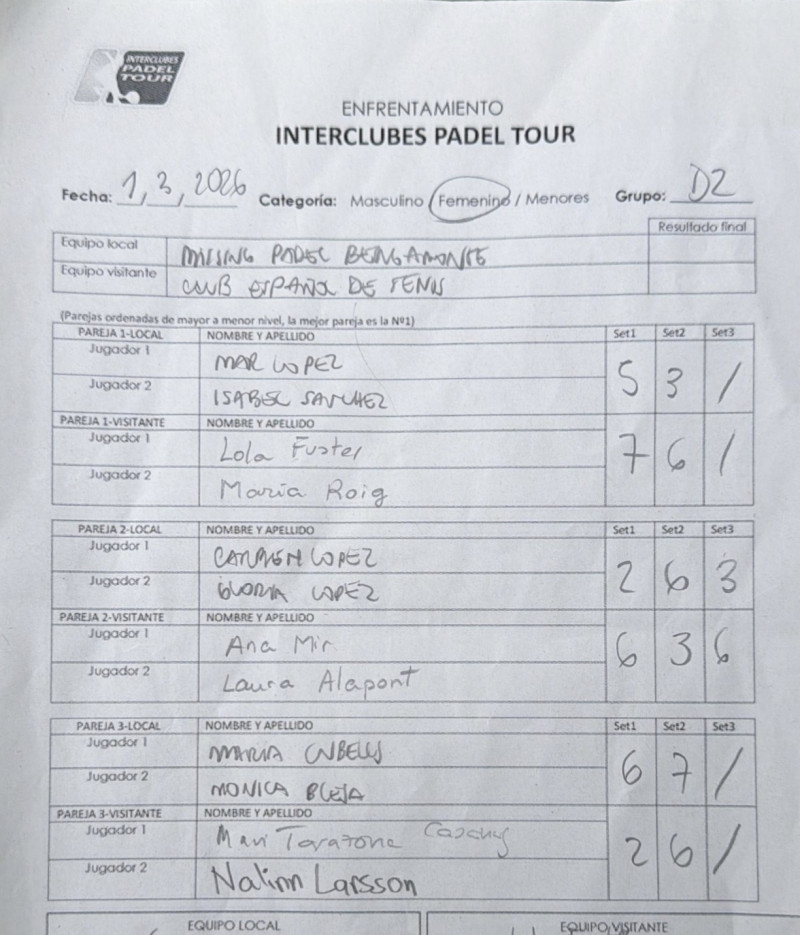 INTERCLUBES
PADEL
TOUR
ENFRENTAMIENTO
INTERCLUBES PADEL TOUR
Fecha: 1, 3, 2026 Categoría: Masculino / Femenino / Menores Grupo: D2
Resultado final
Equipo local MISSING PADEL BERGAMONTE
Equipo visitante CLUB ESPAÑOL DE TENIS
(Parejas ordenadas de mayor a menor nivel, la mejor pareja es la Nº1)
PAREJA 1-LOCAL NOMBRE Y APELLIDO Set1 Set2 Set3
Jugador 1 MAR LOPEZ
5 3 /
Jugador 2 ISABEL SANCHEZ
PAREJA 1-VISITANTE NOMBRE Y APELLIDO
Jugador 1 Lola Fuster
7 6 /
Jugador 2 María Roig
PAREJA 2-LOCAL NOMBRE Y APELLIDO Set1 Set2 Set3
Jugador 1 CARMEN LOPEZ
2 6 3
Jugador 2 GLORIA LOPEZ
PAREJA 2-VISITANTE NOMBRE Y APELLIDO
Jugador 1 Ana Mir
6 3 6
Jugador 2 Laura Alapont
PAREJA 3-LOCAL NOMBRE Y APELLIDO Set1 Set2 Set3
Jugador 1 MARIA CUBELLS
6 7 /
Jugador 2 MONICA
PAREJA 3-VISITANTE NOMBRE Y APELLIDO
Jugador 1 Mavi Tarazona
2 6 /
Jugador 2 Larsson
EQUIPO LOCAL EQUIPO VISITANTE